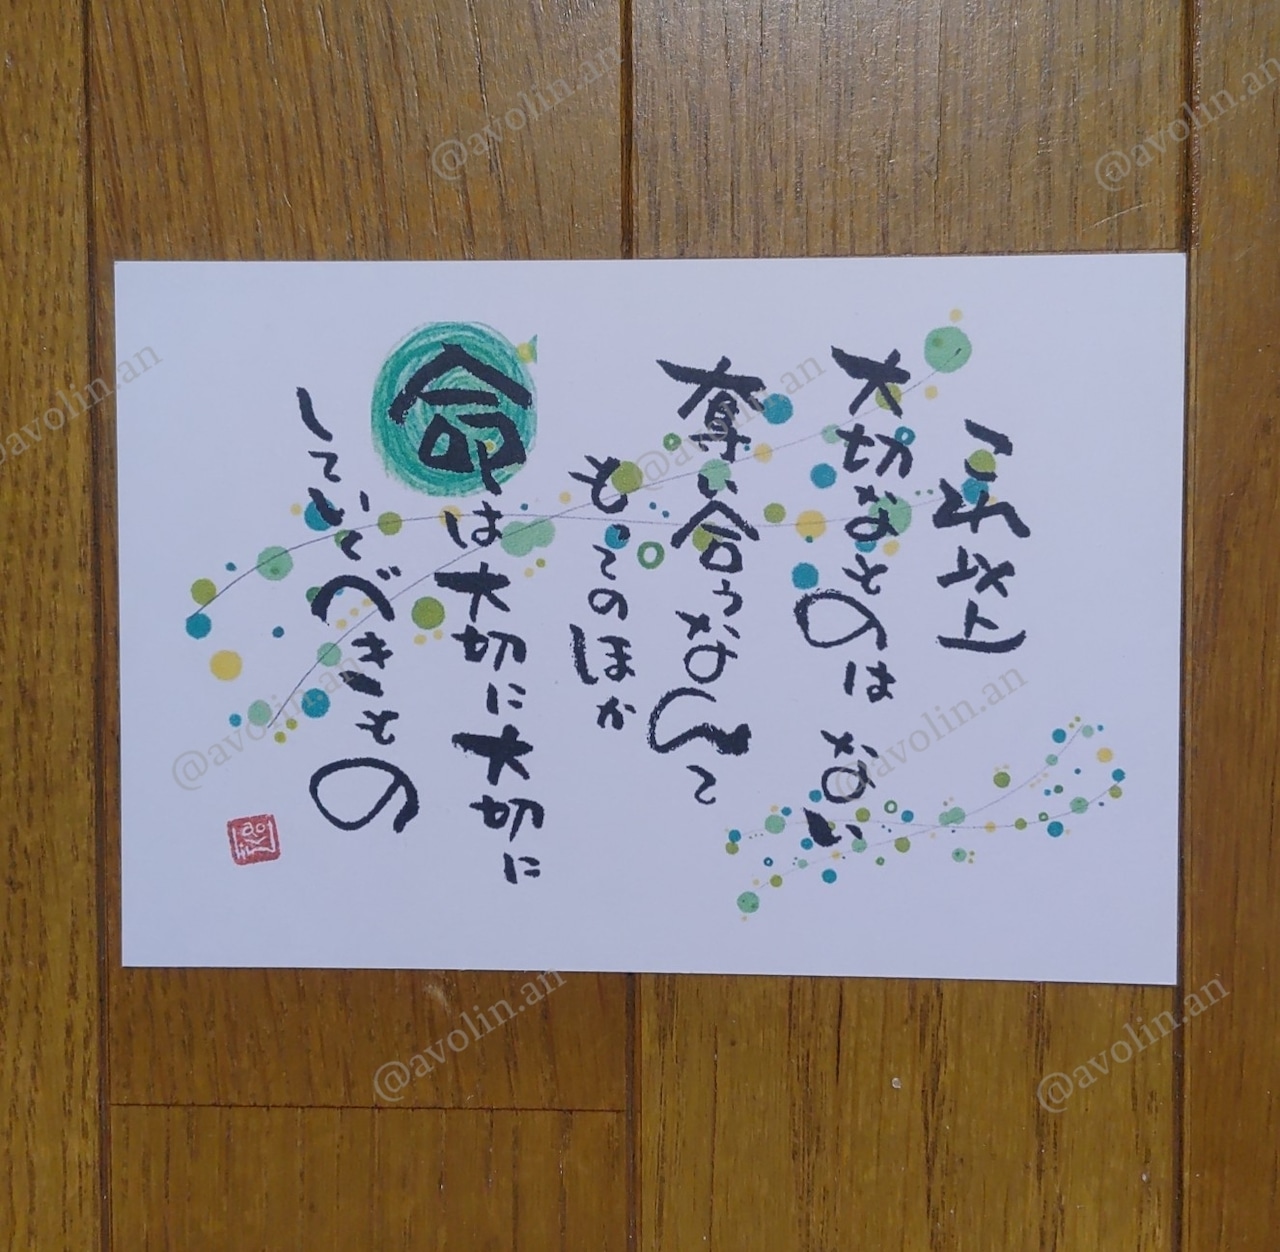 これ以上
大切なものは ない
奪い合うなんて
もってのほか
命は大切に大切に
していくべきもの
@avolin.an
@avolin.an
@avolin.an
@avolin.an
@avolin.an
@avolin.an
@avolin.an
@avolin.an